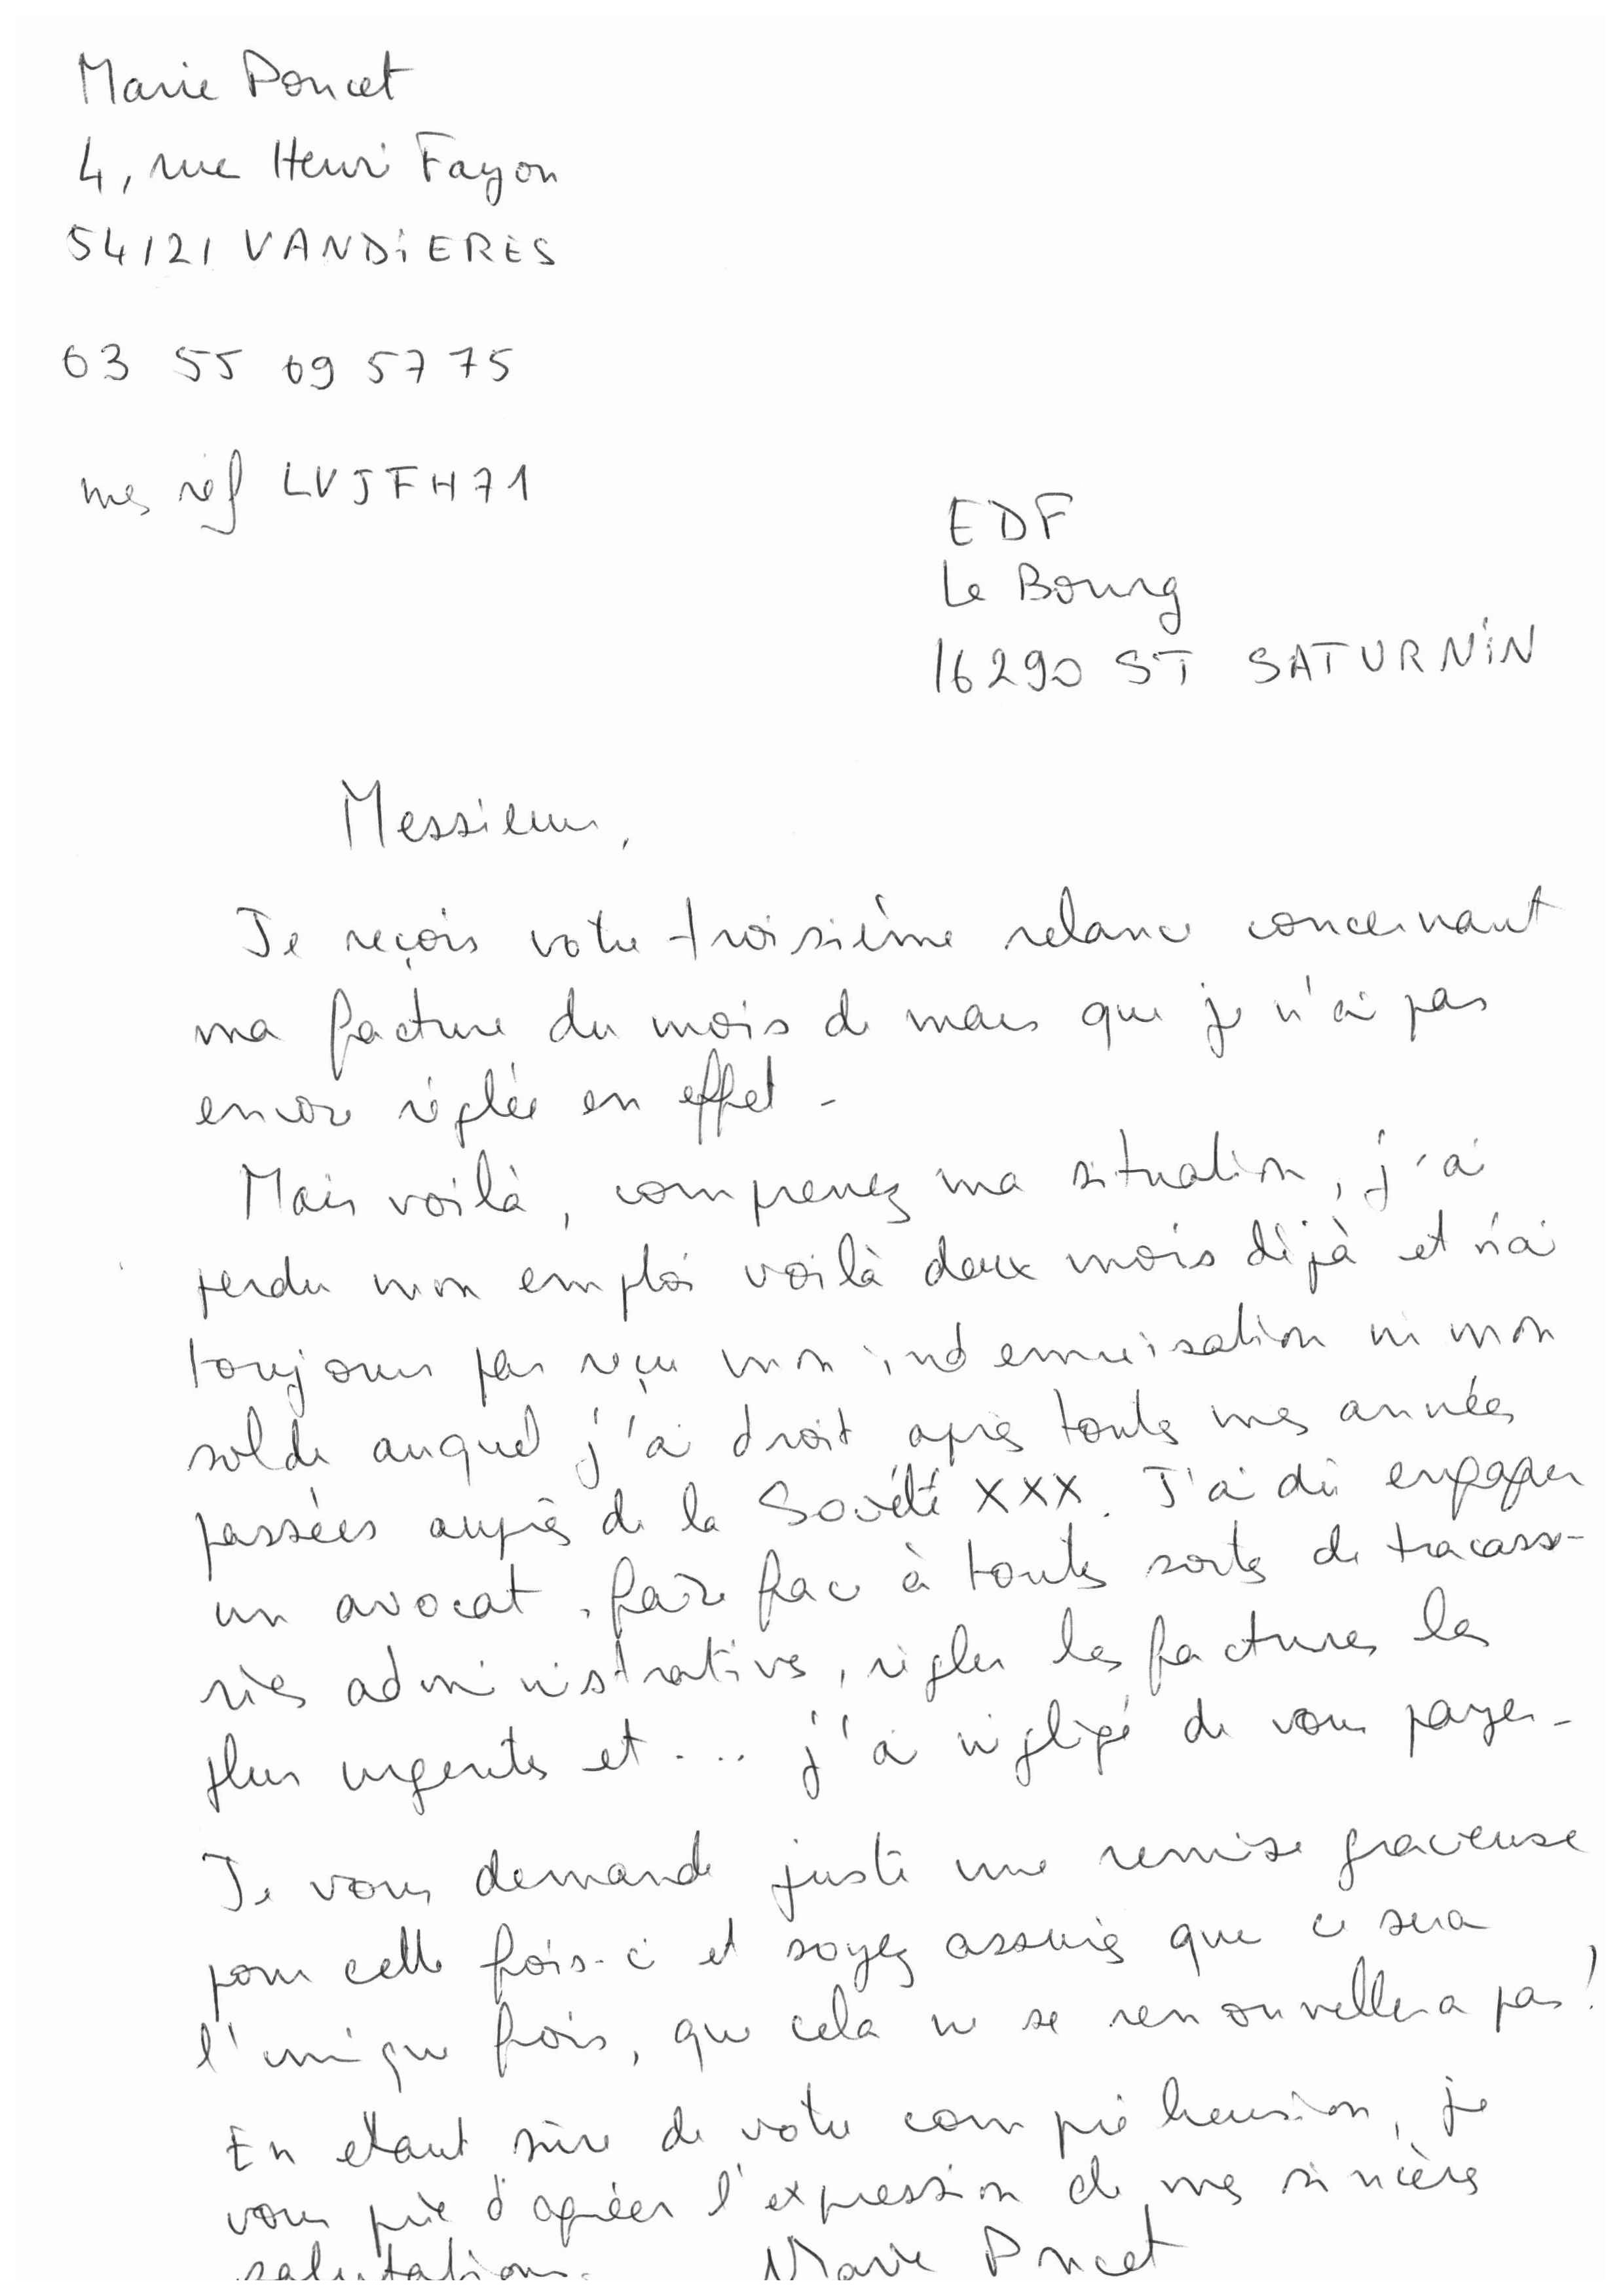 Marie Poncet
4, rue Henri Fayon
54121 VANDiERES
03 55 09 57 75
mes réf LVJFH71
EDF
Le Bourg
16290 ST SATURNiN
Messieurs,
Je reçois votre troisième relance concernant
ma facture du mois de mars que je n'ai pas
encore réglée en effet -
Mais voilà, comprenez ma situation, j'ai
perdu mon emploi voilà deux mois déjà et n'ai
toujours pas reçu mon indemnisation ni mon
solde auquel j'ai droit après toutes mes années
passées auprès de la Société XXX. J'ai dû engager
un avocat, faire face à toutes sortes de tracasse-
ries administratives, régler les factures les
plus urgentes et ... j'ai négligé de vous payer -
Je vous demande juste une remise gracieuse
pour cette fois-ci et soyez assurés que ce sera
l'unique fois, que cela ne se renouvellera pas !
En étant sûre de votre compréhension, je
vous prie d'agréer l'expression de mes sincères
salutations. Marie Poncet